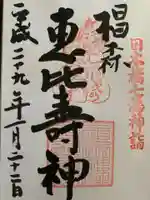 日本橋七福神詣
椙森
恵比壽神
平成二十九年一月二十二日